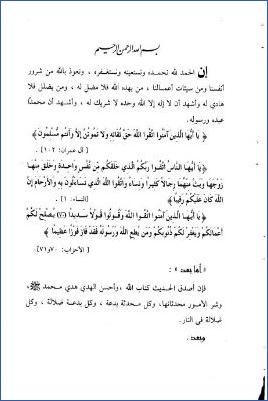 بسم الله الرحمن الرحيم
إن الحمد لله نحمده ونستعينه ونستغفره ، ونعوذ بالله من شرور
أنفسنا ومن سيئات أعمالنا ، من يهده الله فلا مضل له ، ومن يضلل فلا
هادي له وأشهد أن لا إله إلا الله وحده لا شريك له ، وأشهد أن محمدًا
عبده ورسوله.
﴿ يَا أَيُّهَا الَّذِينَ آمَنُوا اتَّقُوا اللَّهَ حَقَّ تُقَاتِهِ وَلَا تَمُوتُنَّ إِلَّا وَأَنتُم مُّسْلِمُونَ ﴾
[ آل عمران: ١٠٢ ] .
﴿ يَا أَيُّهَا النَّاسُ اتَّقُوا رَبَّكُمُ الَّذِي خَلَقَكُم مِّن نَّفْسٍ وَاحِدَةٍ وَخَلَقَ مِنْهَا
زَوْجَهَا وَبَثَّ مِنْهُمَا رِجَالًا كَثِيرًا وَنِسَاءً وَاتَّقُوا اللَّهَ الَّذِي تَسَاءَلُونَ بِهِ وَالْأَرْحَامَ إِنَّ
اللَّهَ كَانَ عَلَيْكُمْ رَقِيبًا ﴾ [النساء: ١] .
﴿ يَا أَيُّهَا الَّذِينَ آمَنُوا اتَّقُوا اللَّهَ وَقُولُوا قَوْلًا سَدِيدًا (٧٠) يُصْلِحْ لَكُمْ
أَعْمَالَكُمْ وَيَغْفِرْ لَكُمْ ذُنُوبَكُمْ وَمَن يُطِعِ اللَّهَ وَرَسُولَهُ فَقَدْ فَازَ فَوْزًا عَظِيمًا ﴾
[الأحزاب: ٧٠و٧١].
« أما بعد » :
فإن أصدق الحديث كتاب الله ، وأحسن الهدي هدي محمد ﷺ،
وشر الأمور محدثاتها، وكل محدثة بدعة ، وكل بدعة ضلالة ، وكل
ضلالة في النار.
وبعد .